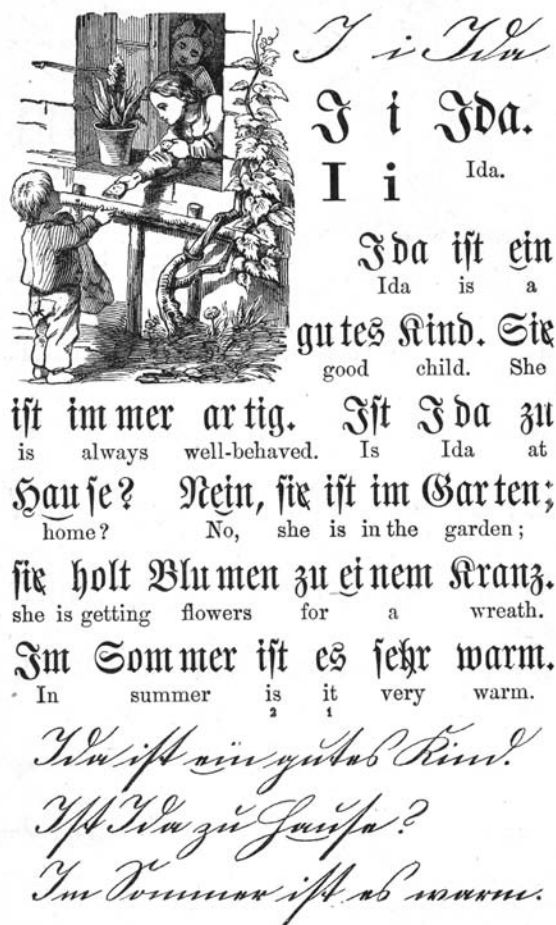 I i Ida
I i Ida.
I i Ida.
I da ist ein
Ida is a
gu tes Kind. Sie
good child. She
ist im mer ar tig. Ist I da zu
is always well-behaved. Is Ida at
Hau se? Nein, sie ist im Gar ten;
home? No, she is in the garden;
sie holt Blu men zu ei nem Kranz.
she is getting flowers for a wreath.
Im Som mer ist es sehr warm.
In summer is it very warm.
2 1
Ida ist ein gutes Kind.
Ist Ida zu Hause?
Im Sommer ist es warm.